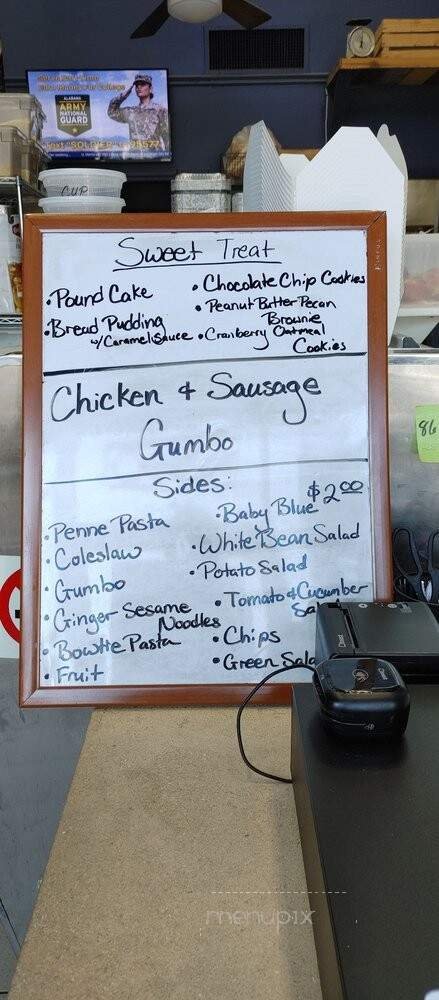 ALABAMA
ARMY
NATIONAL
GUARD
CUP
Sweet Treat
• Pound Cake
• Bread Pudding
w/ Caramel Sauce
• Chocolate Chip Cookies
• Peanut Butter Pecan
Brownie
• Cranberry Oatmeal
Cookies
Chicken & Sausage
Gumbo
Sides:
$2.00
• Penne Pasta
• Coleslaw
• Gumbo
• Ginger Sesame
Noodles
• Bowtie Pasta
• Fruit
• Baby Blue
• White Bean Salad
• Potato Salad
• Tomato & Cucumber
• Chips
• Green Sala
86
menupix